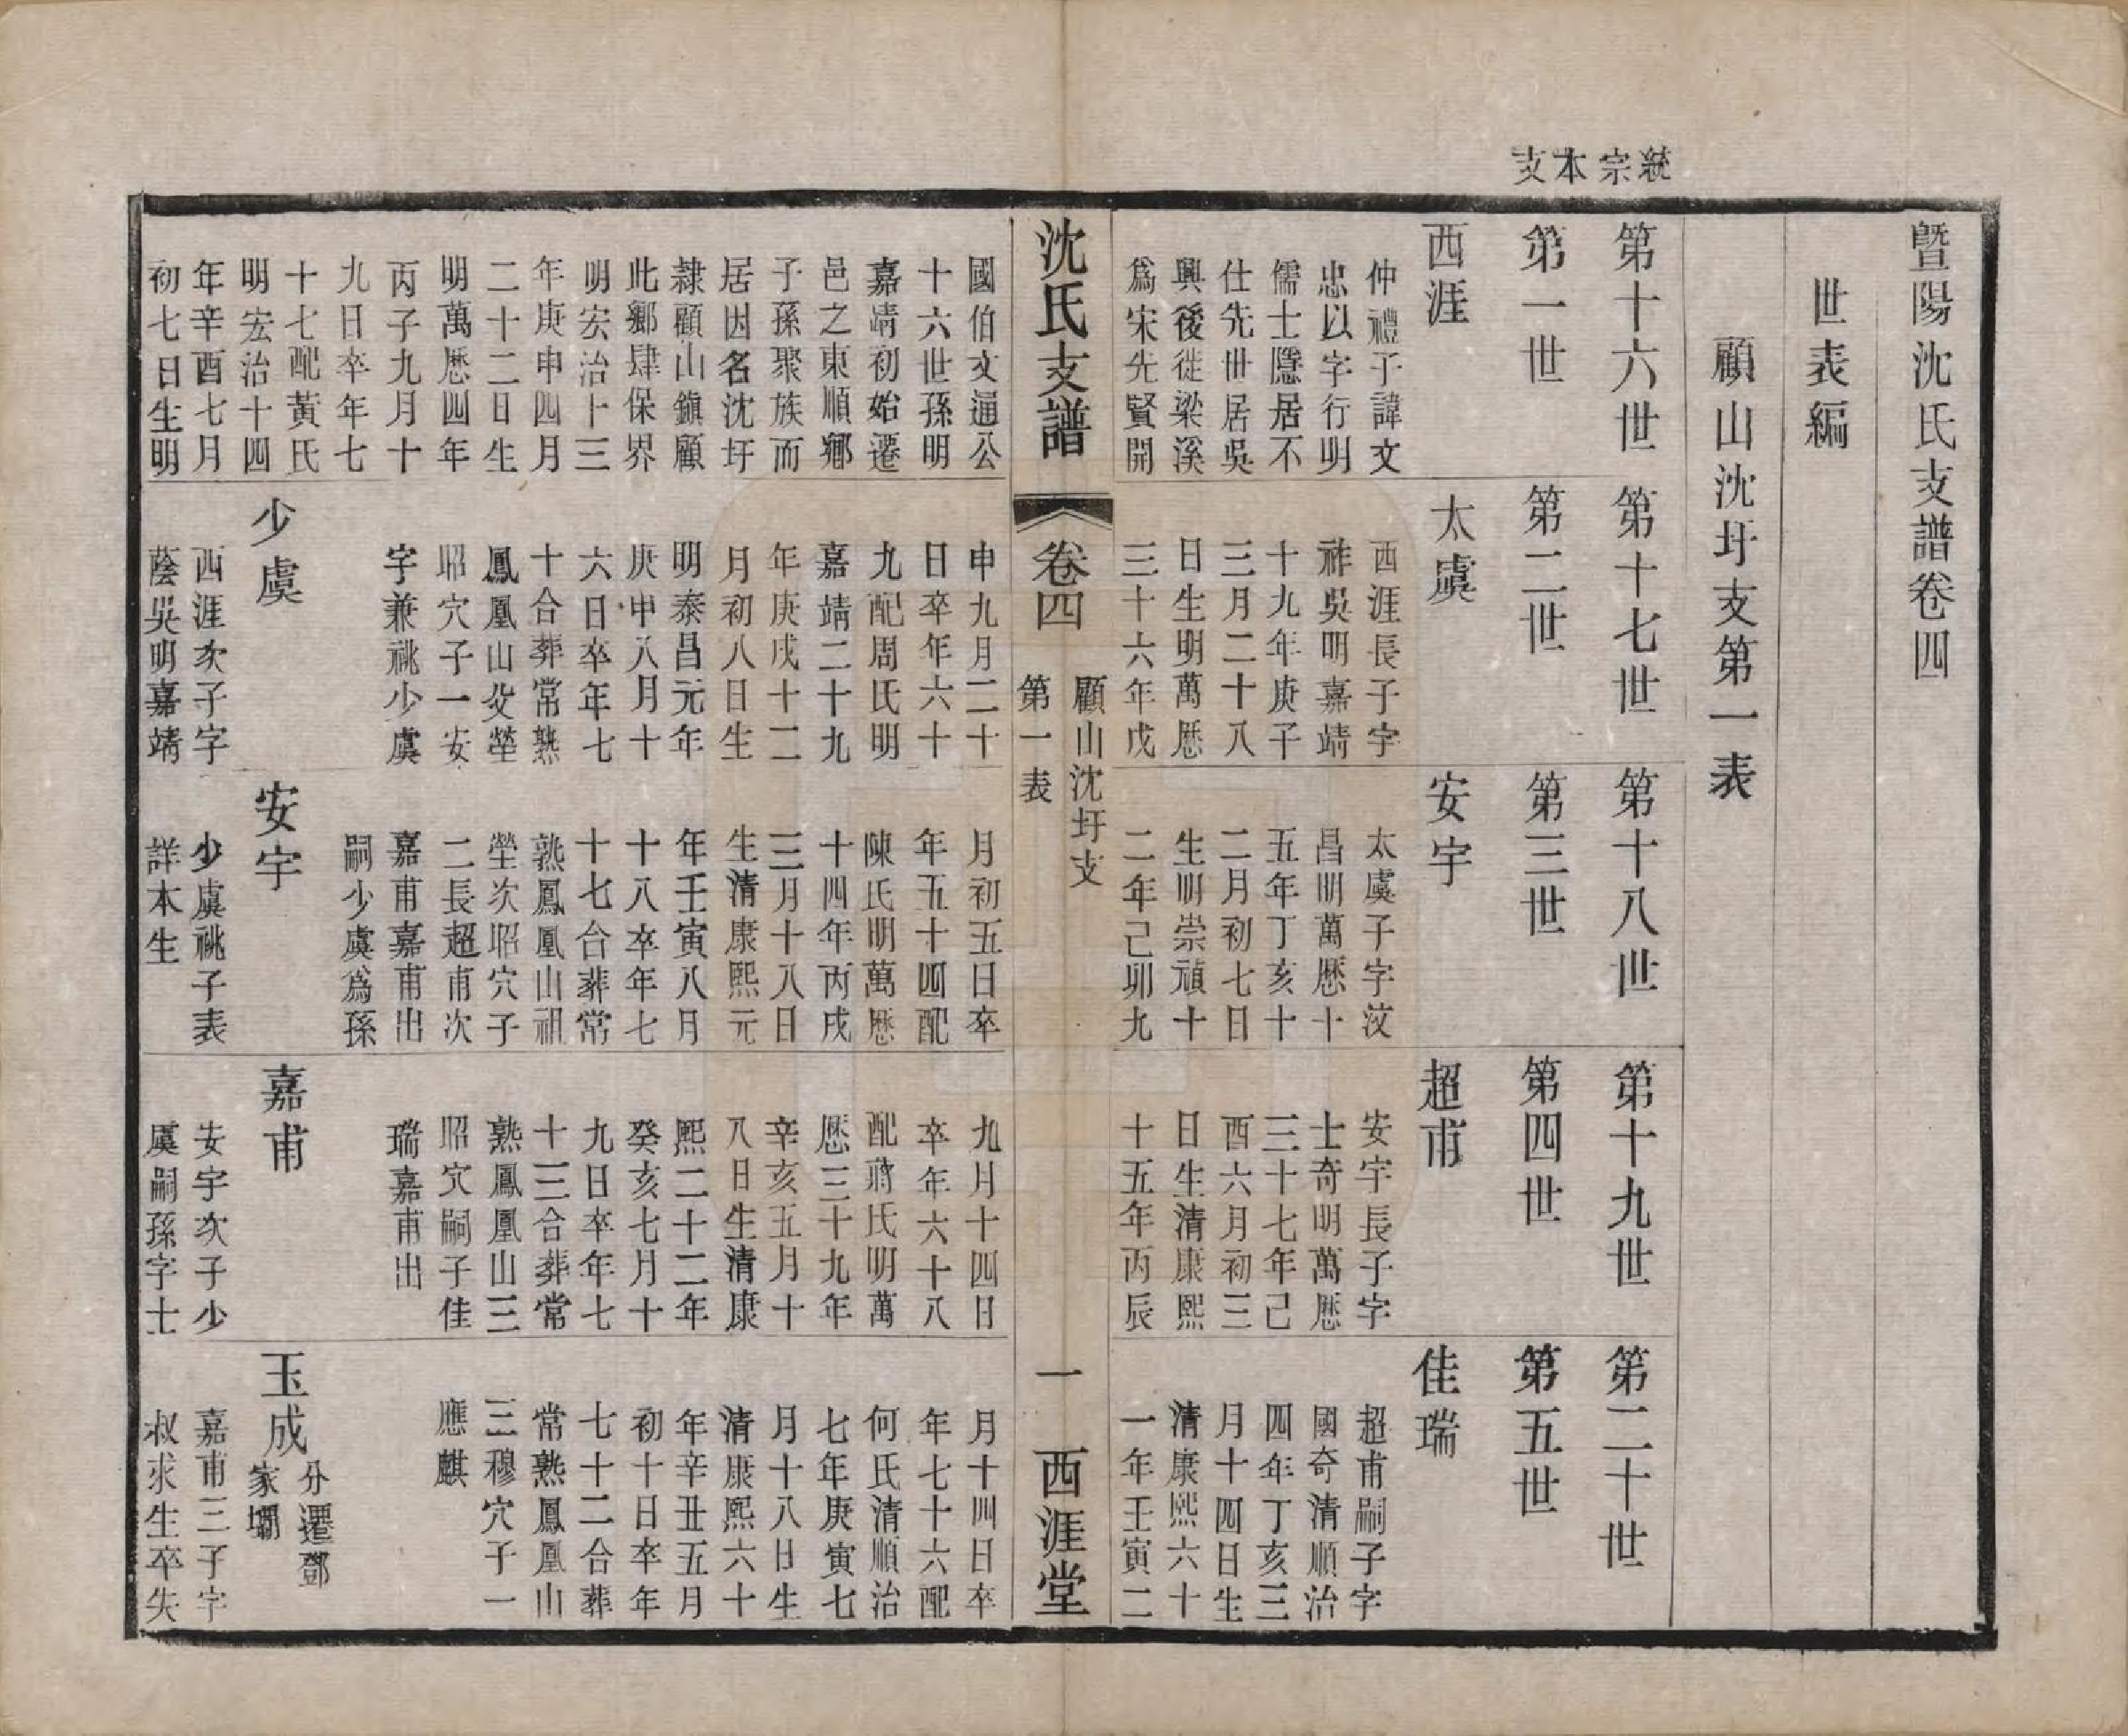 統宗本支
暨陽沈氏支譜卷四
世表編
顧山沈圩支第一表
第十六世
第一世
西涯
仲禮子諱文
忠以字行明
儒士隱居不
仕先世居吳
興後徙梁溪
爲宋先賢開
國伯文通公
十六世孫明
嘉靖初始遷
邑之東順鄉
子孫聚族而
居因名沈圩
隸顧山鎮顧
此鄉肆保界
明宏治十三
年庚申四月
二十二日生
明萬歷四年
丙子九月十
九日卒年七
十七配黃氏
明宏治十四
年辛酉七月
初七日生明
第十七世
第二世
太虞
西涯長子字
祚吳明嘉靖
十九年庚子
三月二十八
日生明萬歷
三十六年戊
申九月二十
日卒年六十
九配周氏明
嘉靖二十九
年庚戌十二
月初八日生
明泰昌元年
庚申八月十
六日卒年七
十合葬常熟
鳳凰山父塋
昭穴子一安
宇兼祧少虞
少虞
西涯次子字
蔭吳明嘉靖
第十八世
第三世
安宇
太虞子字汶
昌明萬歷十
五年丁亥十
二月初七日
生明崇禎十
二年己卯九
月初五日卒
年五十四配
陳氏明萬歷
十四年丙戌
三月十八日
生清康熙元
年壬寅八月
十八卒年七
十七合葬常
熟鳳凰山祖
塋次昭穴子
二長超甫次
嘉甫嘉甫出
嗣少虞爲孫
安宇
少虞祧子表
詳本生
第十九世
第四世
超甫
安宇長子字
士奇明萬歷
三十七年己
酉六月初三
日生清康熙
十五年丙辰
九月十四日
卒年六十八
配蔣氏明萬
歷三十九年
辛亥五月十
八日生清康
熙二十二年
癸亥七月十
九日卒年七
十三合葬常
熟鳳凰山三
昭穴嗣子佳
瑞嘉甫出
嘉甫
安宇次子少
虞嗣孫字士
第二十世
第五世
佳瑞
超甫嗣子字
國奇清順治
四年丁亥三
月十四日生
清康熙六十
一年壬寅二
月十四日卒
年七十六配
何氏清順治
七年庚寅七
月十八日生
清康熙六十
年辛丑五月
初十日卒年
七十二合葬
常熟鳳凰山
三穆穴子一
應麒
玉成
分遷鄧
家壩
嘉甫三子字
叔求生卒失
沈氏支譜
卷四
顧山沈圩支
第一表
一
西涯堂